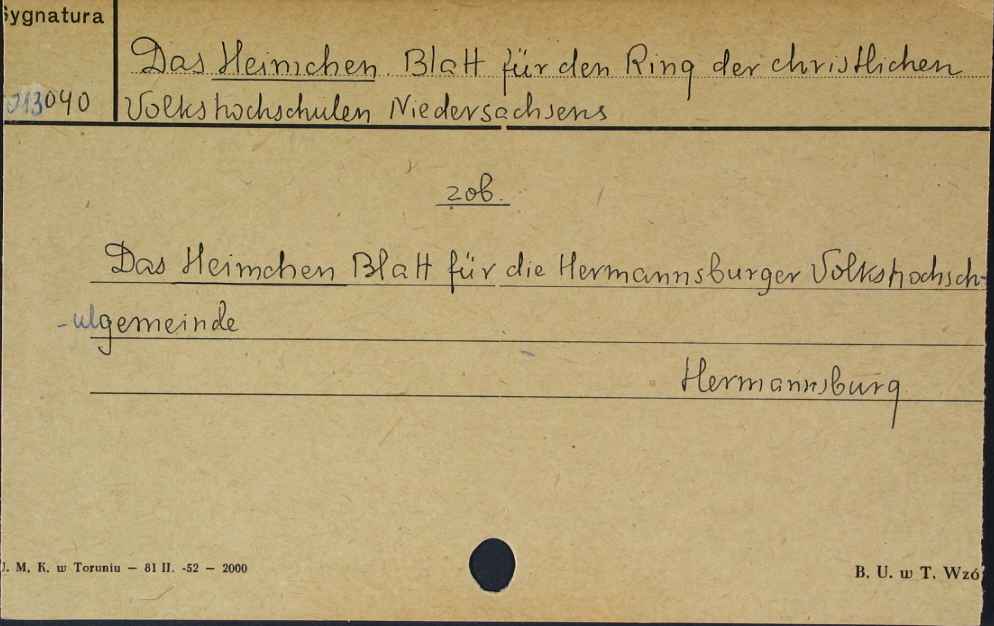 Sygnatura
Das Heimchen Blatt für den Ring der christlichen
013040 Volkshochschulen Niedersachsens
zob.
Das Heimchen Blatt für die Hermannsburger Volkshochsch-
-ulgemeinde
Hermannsburg
U. M. K. w Toruniu — 81 II. -52 — 2000
B. U. w T. Wzó